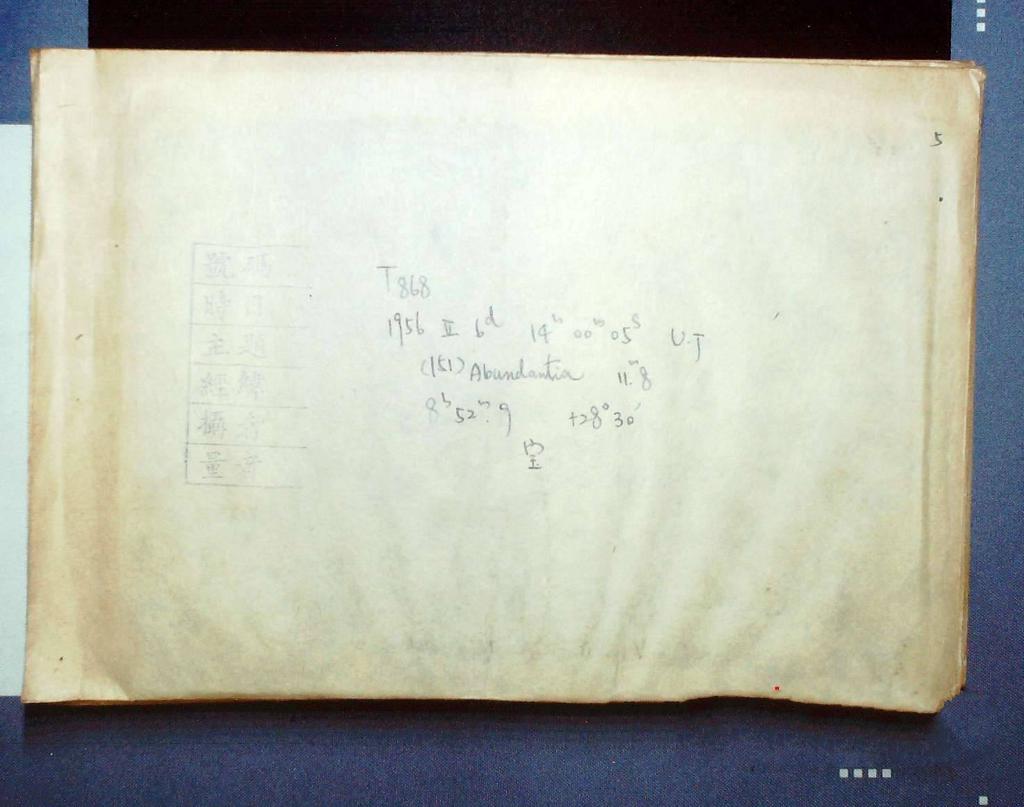 5
號碼
時日
主題
經緯
攝者
量者
T868
1956 II 6ᵈ 14ʰ 00ᵐ 05ˢ U.T
(151) Abundantia 11.ᵐ8
8ʰ 52ᵐ.9 +28°30′
宝